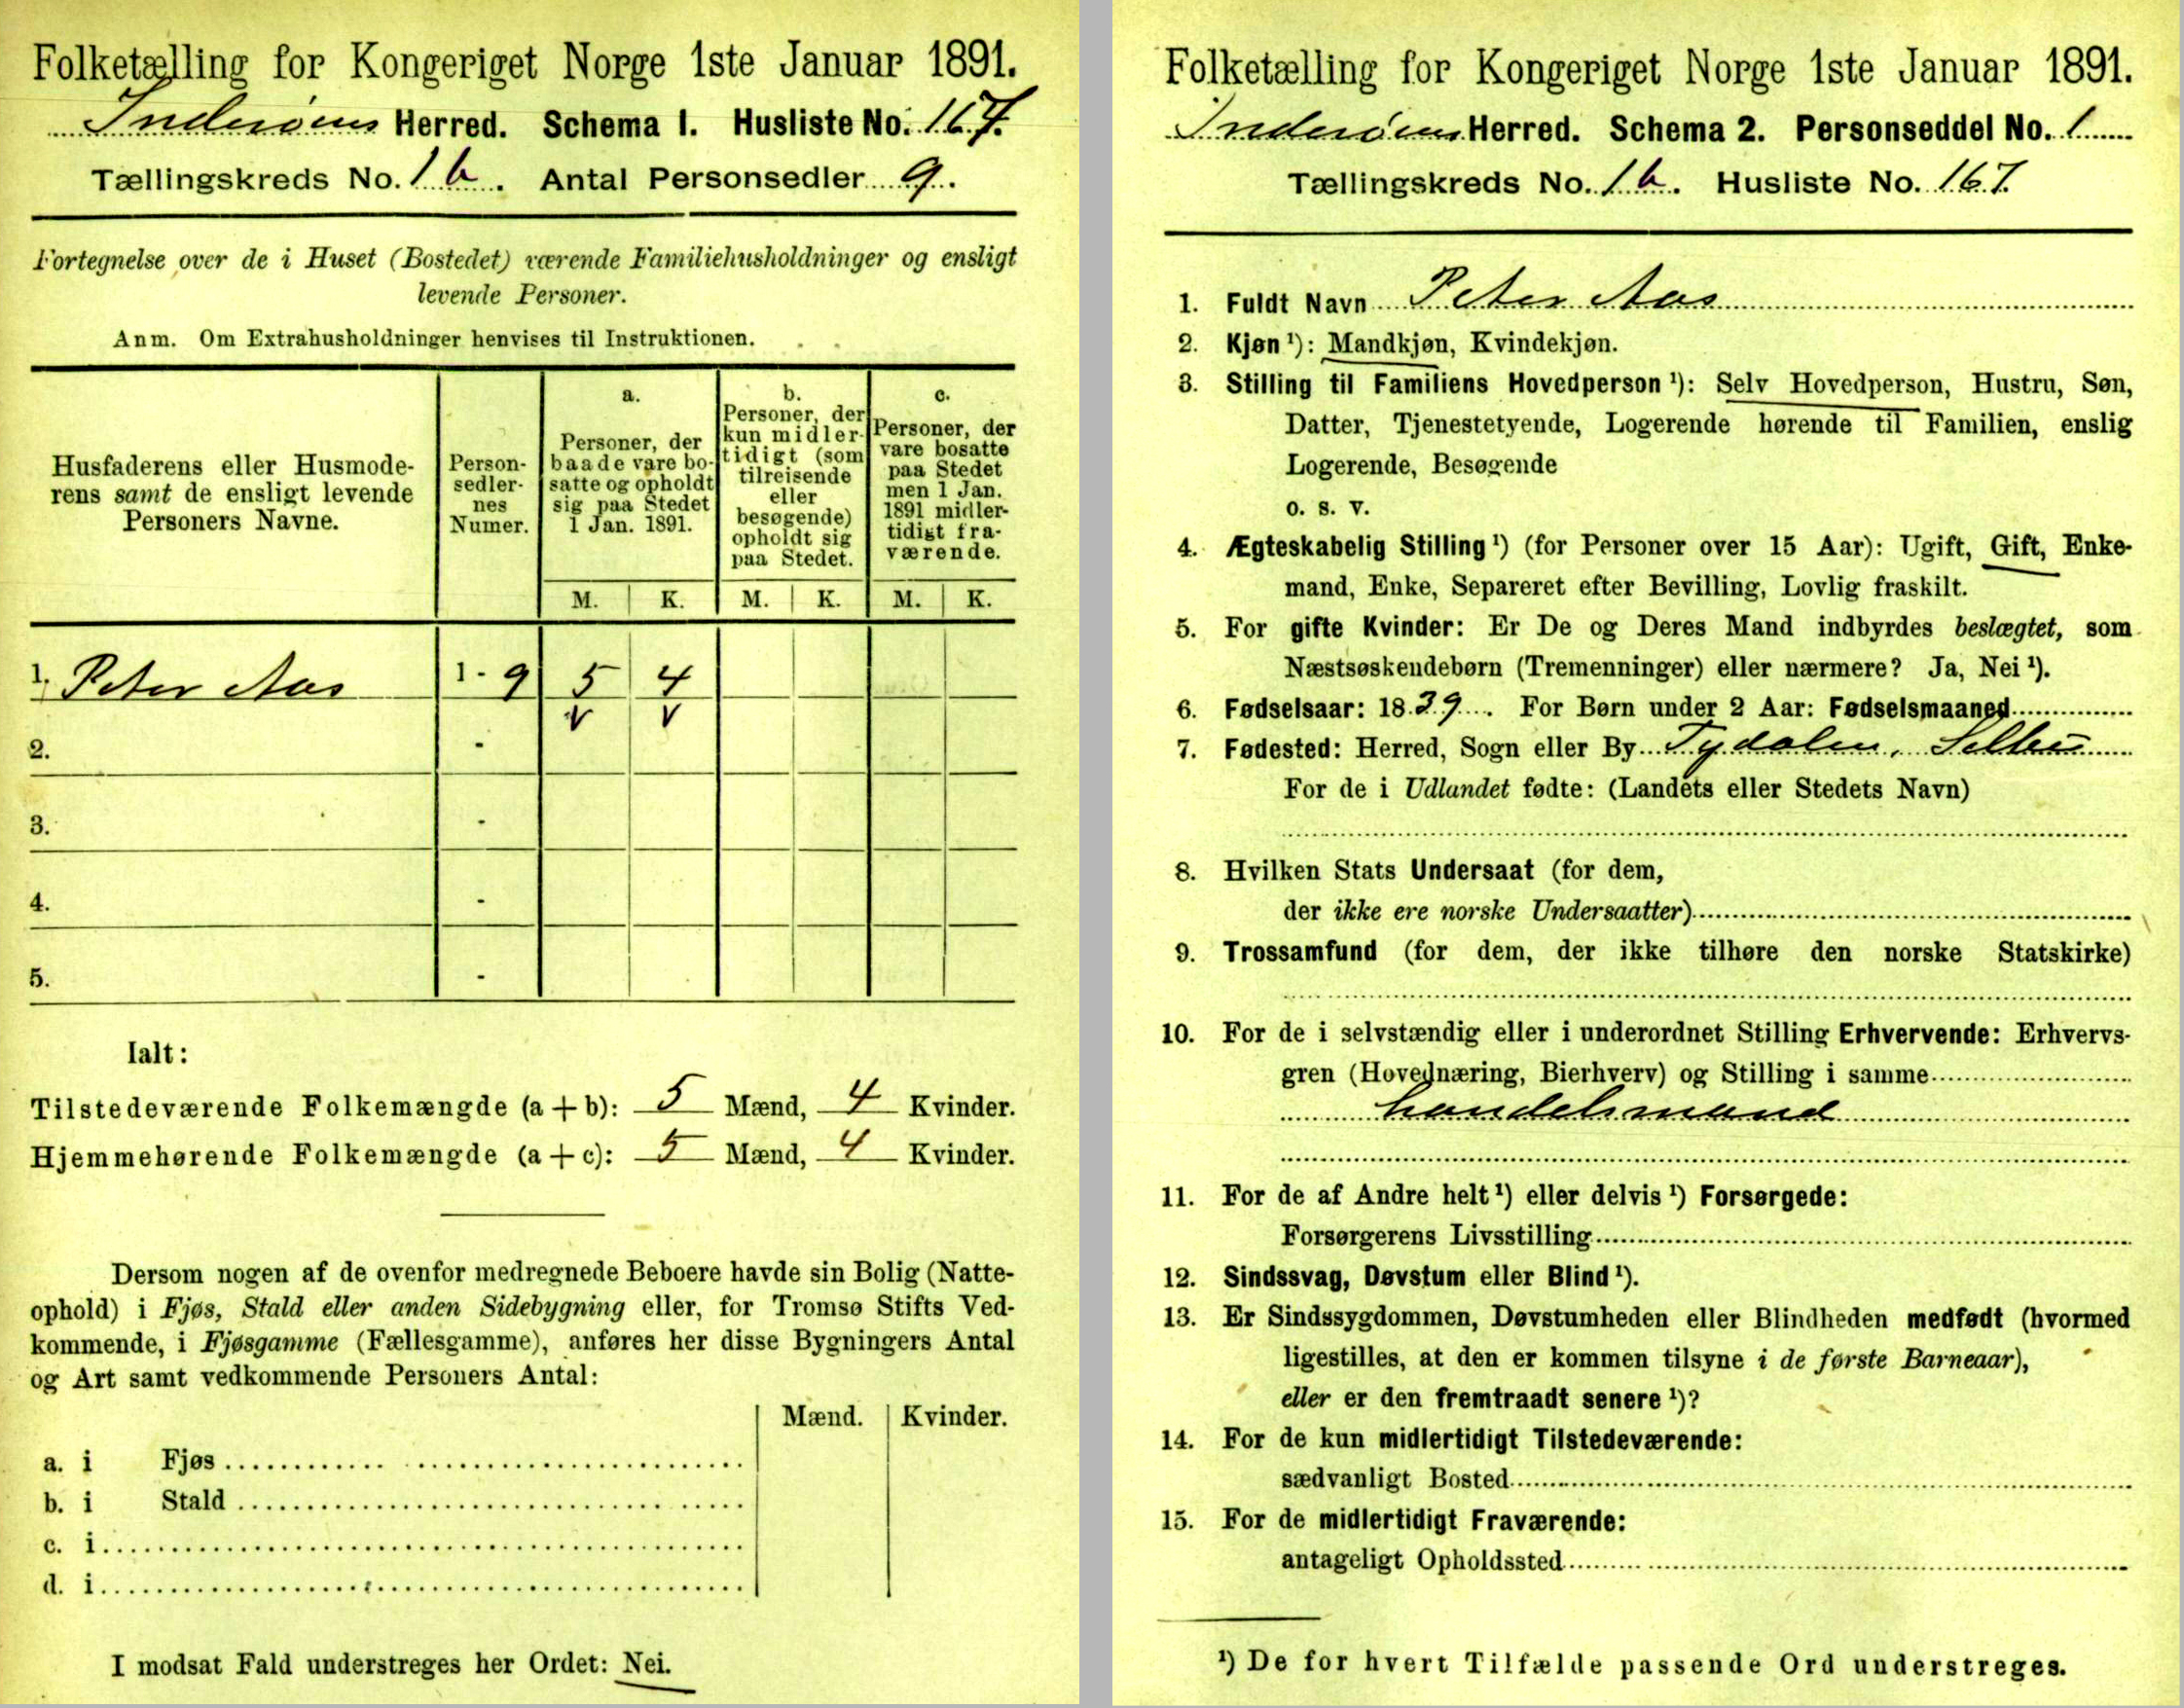 Folketælling for Kongeriget Norge 1ste Januar 1891.
Inderøens Herred. Schema 1. Husliste No. 167.
Tællingskreds No. 1 b. Antal Personsedler 9.
Fortegnelse over de i Huset (Bostedet) værende Familiehusholdninger og ensligt
levende Personer.
Anm. Om Extrahusholdninger henvises til Instruktionen.
Husfaderens eller Husmode-
rens samt de ensligt levende
Personers Navne.
Person-
sedler-
nes
Numer.
a.
Personer, der
baade vare bo-
satte og opholdt
sig paa Stedet
1 Jan. 1891.
b.
Personer, der
kun midler-
tidigt (som
tilreisende
eller
besøgende)
opholdt sig
paa Stedet.
c.
Personer, der
vare bosatte
paa Stedet
men 1 Jan.
1891 midler-
tidigt fra-
værende.
M. K. M. K. M. K.
1. Peter Aas 1 - 9 5 4
2. -
3. -
4. -
5. -
Ialt:
Tilstedeværende Folkemængde (a + b): 5 Mænd, 4 Kvinder.
Hjemmehørende Folkemængde (a + c): 5 Mænd, 4 Kvinder.
Dersom nogen af de ovenfor medregnede Beboere havde sin Bolig (Natte-
ophold) i Fjøs, Stald eller anden Sidebygning eller, for Tromsø Stifts Ved-
kommende, i Fjøsgamme (Fællesgamme), anføres her disse Bygningers Antal
og Art samt vedkommende Personers Antal:
Mænd. Kvinder.
a. i Fjøs
b. i Stald
c. i
d. i
I modsat Fald understreges her Ordet: Nei.
Folketælling for Kongeriget Norge 1ste Januar 1891.
Inderøens Herred. Schema 2. Personseddel No. 1
Tællingskreds No. 1 b. Husliste No. 167.
1. Fuldt Navn Peter Aas
2. Kjøn ¹): Mandkjøn, Kvindekjøn.
3. Stilling til Familiens Hovedperson ¹): Selv Hovedperson, Hustru, Søn,
Datter, Tjenestetyende, Logerende hørende til Familien, enslig
Logerende, Besøgende
o. s. v.
4. Ægteskabelig Stilling ¹) (for Personer over 15 Aar): Ugift, Gift, Enke-
mand, Enke, Separeret efter Bevilling, Lovlig fraskilt.
5. For gifte Kvinder: Er De og Deres Mand indbyrdes beslægtet, som
Næstsøskendebørn (Tremenninger) eller nærmere? Ja, Nei ¹).
6. Fødselsaar: 1839. For Børn under 2 Aar: Fødselsmaaned
7. Fødested: Herred, Sogn eller By Tydalen, Selbu
For de i Udlandet fødte: (Landets eller Stedets Navn)
8. Hvilken Stats Undersaat (for dem,
der ikke ere norske Undersaatter)
9. Trossamfund (for dem, der ikke tilhøre den norske Statskirke)
10. For de i selvstændig eller i underordnet Stilling Erhvervende: Erhvervs-
gren (Hovednæring, Bierhverv) og Stilling i samme
handelsmand
11. For de af Andre helt ¹) eller delvis ¹) Forsørgede:
Forsørgerens Livsstilling
12. Sindssvag, Døvstum eller Blind ¹).
13. Er Sindssygdommen, Døvstumheden eller Blindheden medfødt (hvormed
ligestilles, at den er kommen tilsyne i de første Barneaar),
eller er den fremtraadt senere ¹)?
14. For de kun midlertidigt Tilstedeværende:
sædvanligt Bosted
15. For de midlertidigt Fraværende:
antageligt Opholdssted
¹) De for hvert Tilfælde passende Ord understreges.